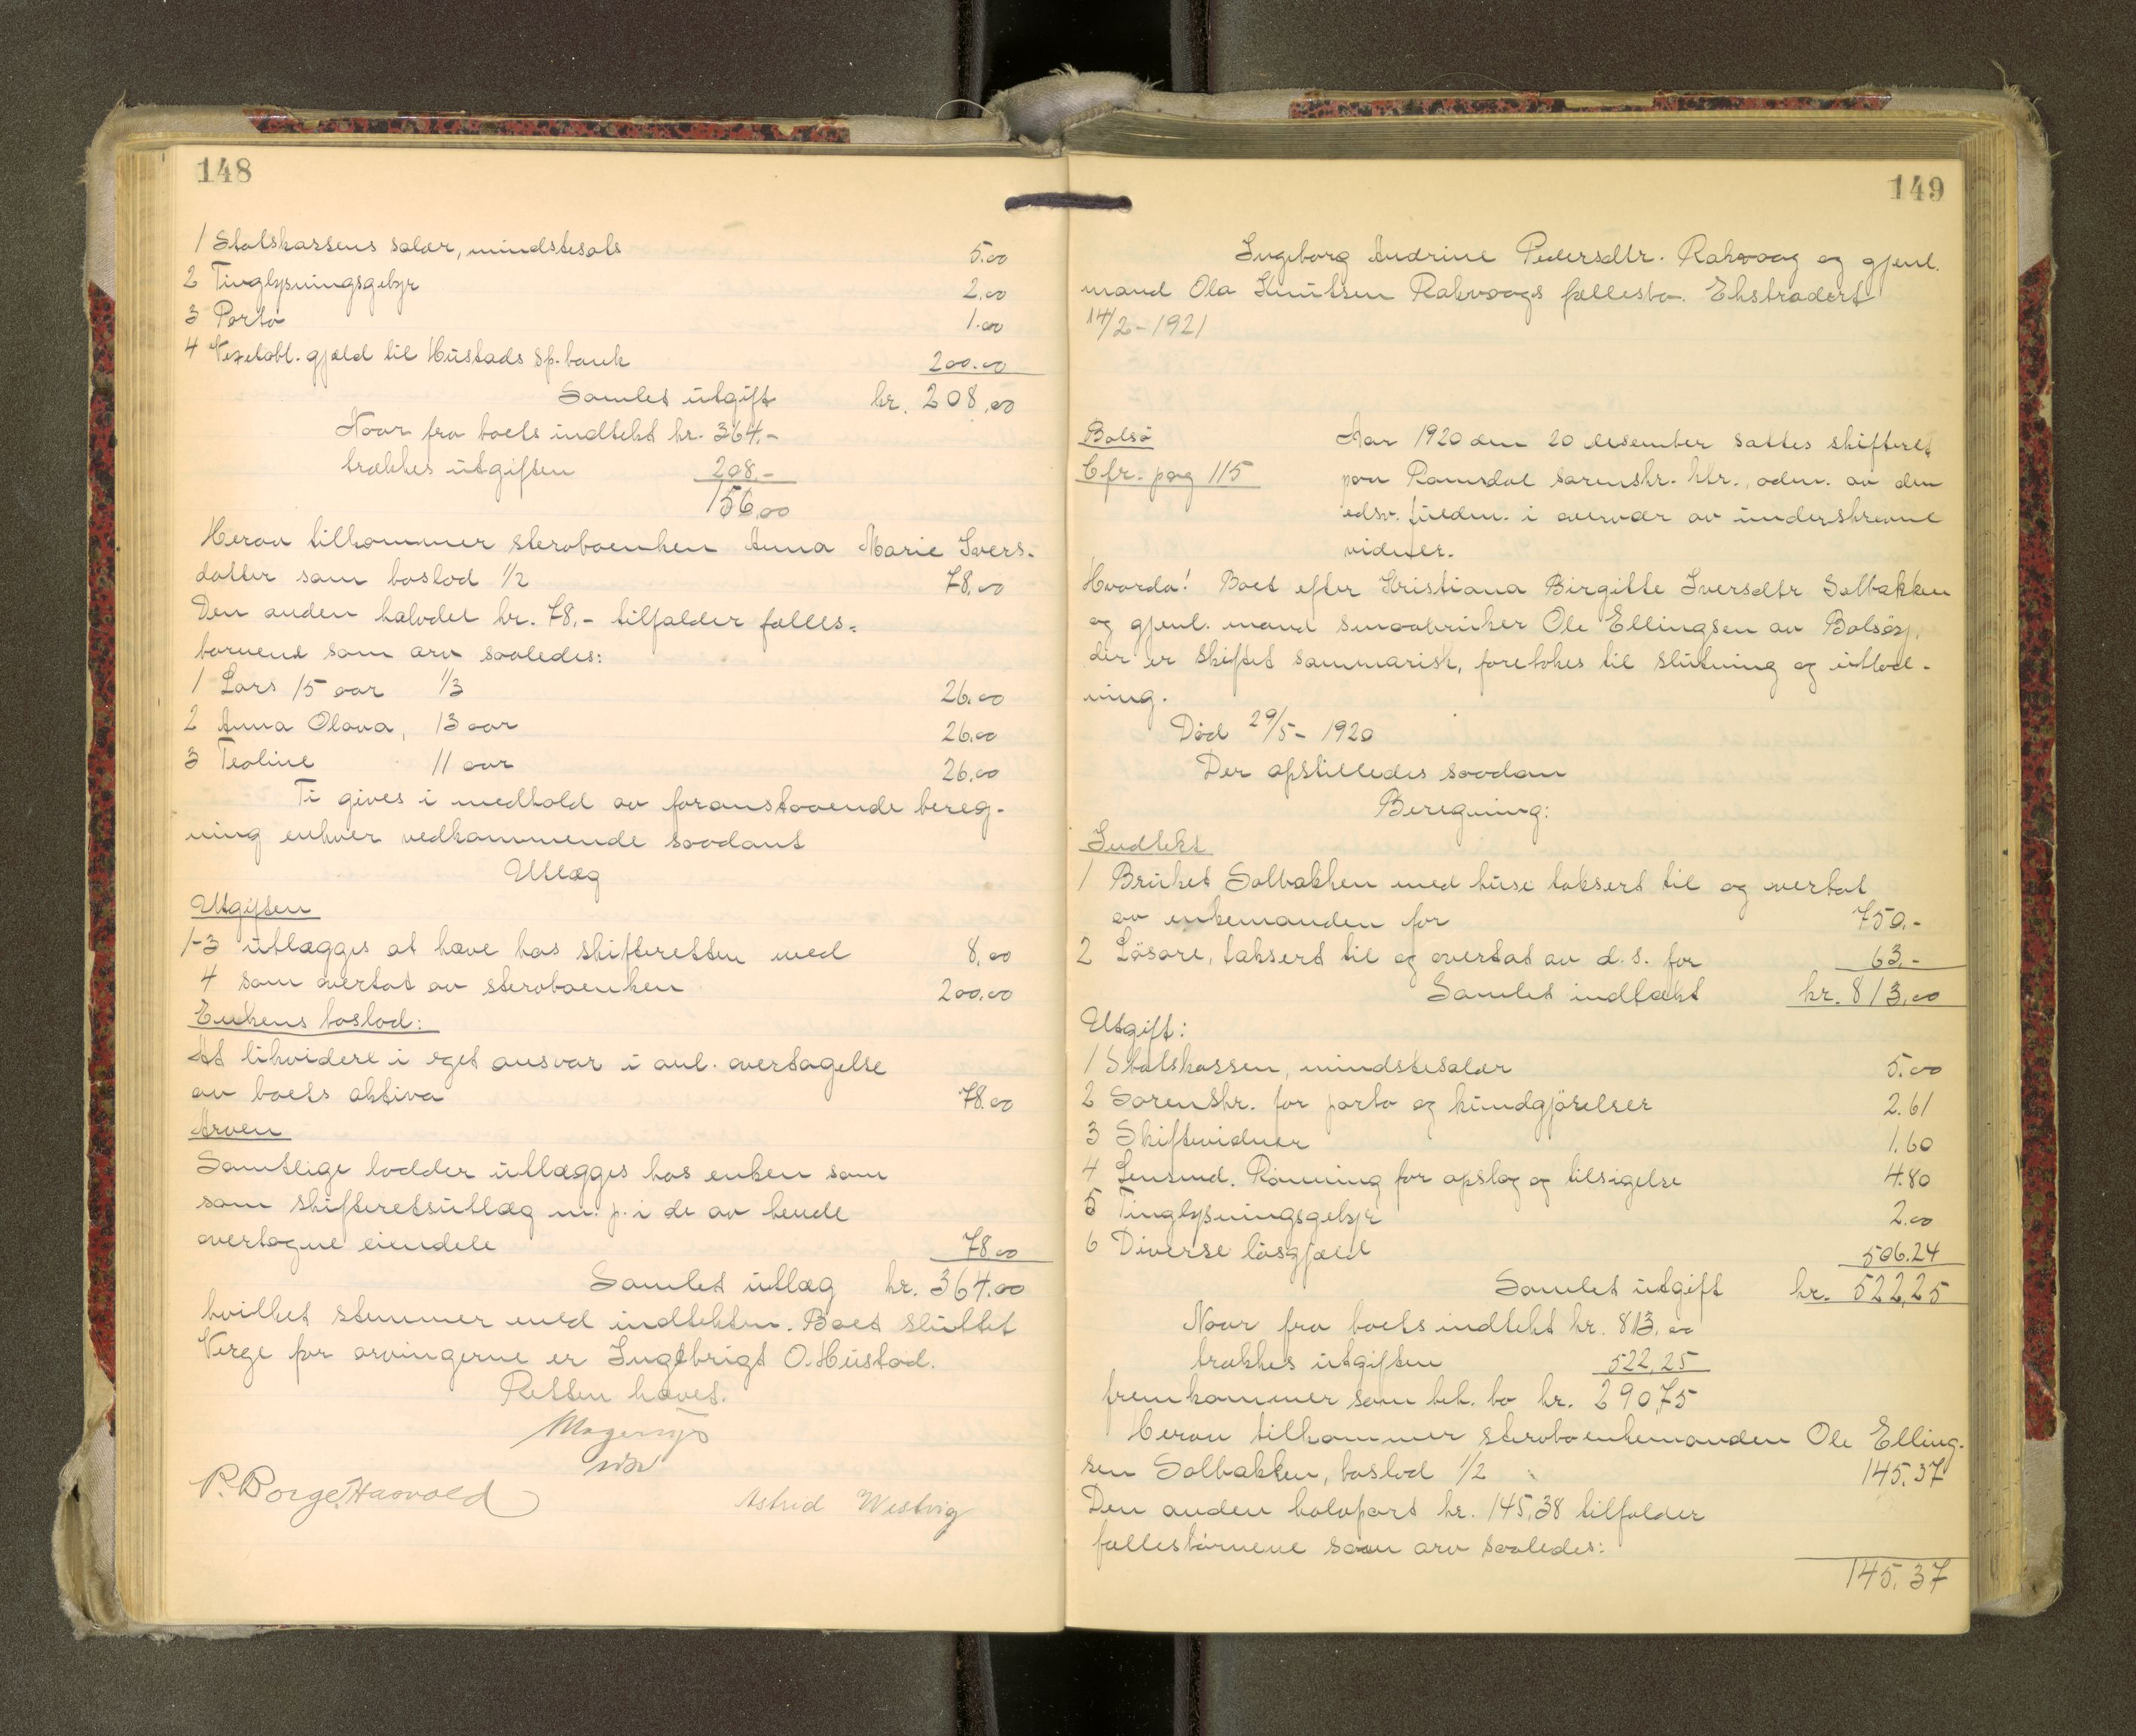 148
1 Statskassens salær, mindstesats 5.00
2 Tinglysningsgebyr 2.00
3 Porto 1.00
4 Vexelobl. gjæld til Hustads sp.bank 200.00
Samlet utgift kr. 208,00
Naar fra boets indtekt kr. 364,-
trækkes utgiften 208,-
156,00
Herav tilkommer stervboenken Anna Marie Ivers-
datter som boslod 1/2 78,00
Den anden halvdel kr. 78,- tilfalder fælles=
barnene som arv saaledes:
1 Lars 15 aar 1/3 26.00
2 Anna Olava, 13 aar 26.00
3 Teoline 11 aar 26.00
Ti gives i medhold av foranstaaende bereg-
ning enhver vedkommende saadant
Utlæg
Utgiften
1-3 utlægges at hæve hos skifteretten med 8,00
4 som overtat av stervboenken 200.00
Enkens boslod:
At likvidere i eget ansvar i anl. overtagelse
av boets aktiva 78.00
Arven
Samtlige lodder utlægges hos enken som
som skifteretsutlæg m. p. i de av hende
overtagne eiendele 78.00
Samlet utlæg kr. 364.00
hvilket stemmer med indtekten. Boet sluttet
Verge for arvingerne er Ingebrigt O. Hustad.
Retten hævet.
P. Borge Haavold
Astrid Westvig
149
Ingeborg Andrine Pedersdtr. Rakvaag og gjenl.
mand Ola Knutsen Rakvaags fællesbo. Ekstradert
14/2-1921
Bolsö
Cfr. pag 115
Aar 1920 den 20 desember sattes skifteret
paa Romsdal sorenskr. ktr., adm. av den
edsv. fuldm. i overvær av underskrevne
vidner.
Hvorda! Boet efter Kristiana Birgitte Iversdtr Solbakken
og gjenl. mand smaabruker Ole Ellingsen av Bolsö,
der er skiftet sammarisk, foretokes til slutning og utlod-
ning.
Död 29/5- 1920
Der opstilledes saadan
Beregning:
Indtekt
1 Bruket Solbakken med huse taksert til og overtat
av enkemanden for 750.-
2 Lösöre, taksert til og overtat av d. s. for 63,-
Samlet indtækt kr. 813,00
Utgift:
1 Statskassen, mindstesalær 5.00
2 Sorenskr. for porto og kundgjörelser 2.61
3 Skiftevidner 1.60
4 Lensmd. Rönning for opslag og tilsigelse 4.80
5 Tinglysningsgebyr 2.00
6 Diverse lösgjæld 506.24
Samlet utgift kr. 522,25
Naar fra boets indtekt kr. 813,00
trækkes utgiften 522,25
fremkommer som beh. bo kr. 290,75
Herav tilkommer stervboenkemanden Ole Elling-
sen Solbakken, boslod 1/2 145,37
Den anden halvpart kr. 145,38 tilfalder
fællesbarnene som arv saaledes:
145,37